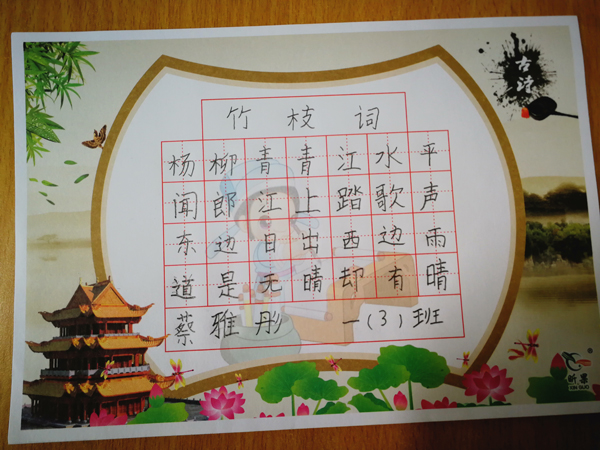 竹枝词
杨柳青青江水平
闻郎江上踏歌声
东边日出西边雨
道是无晴却有晴
蔡雅彤 一(3)班
古诗